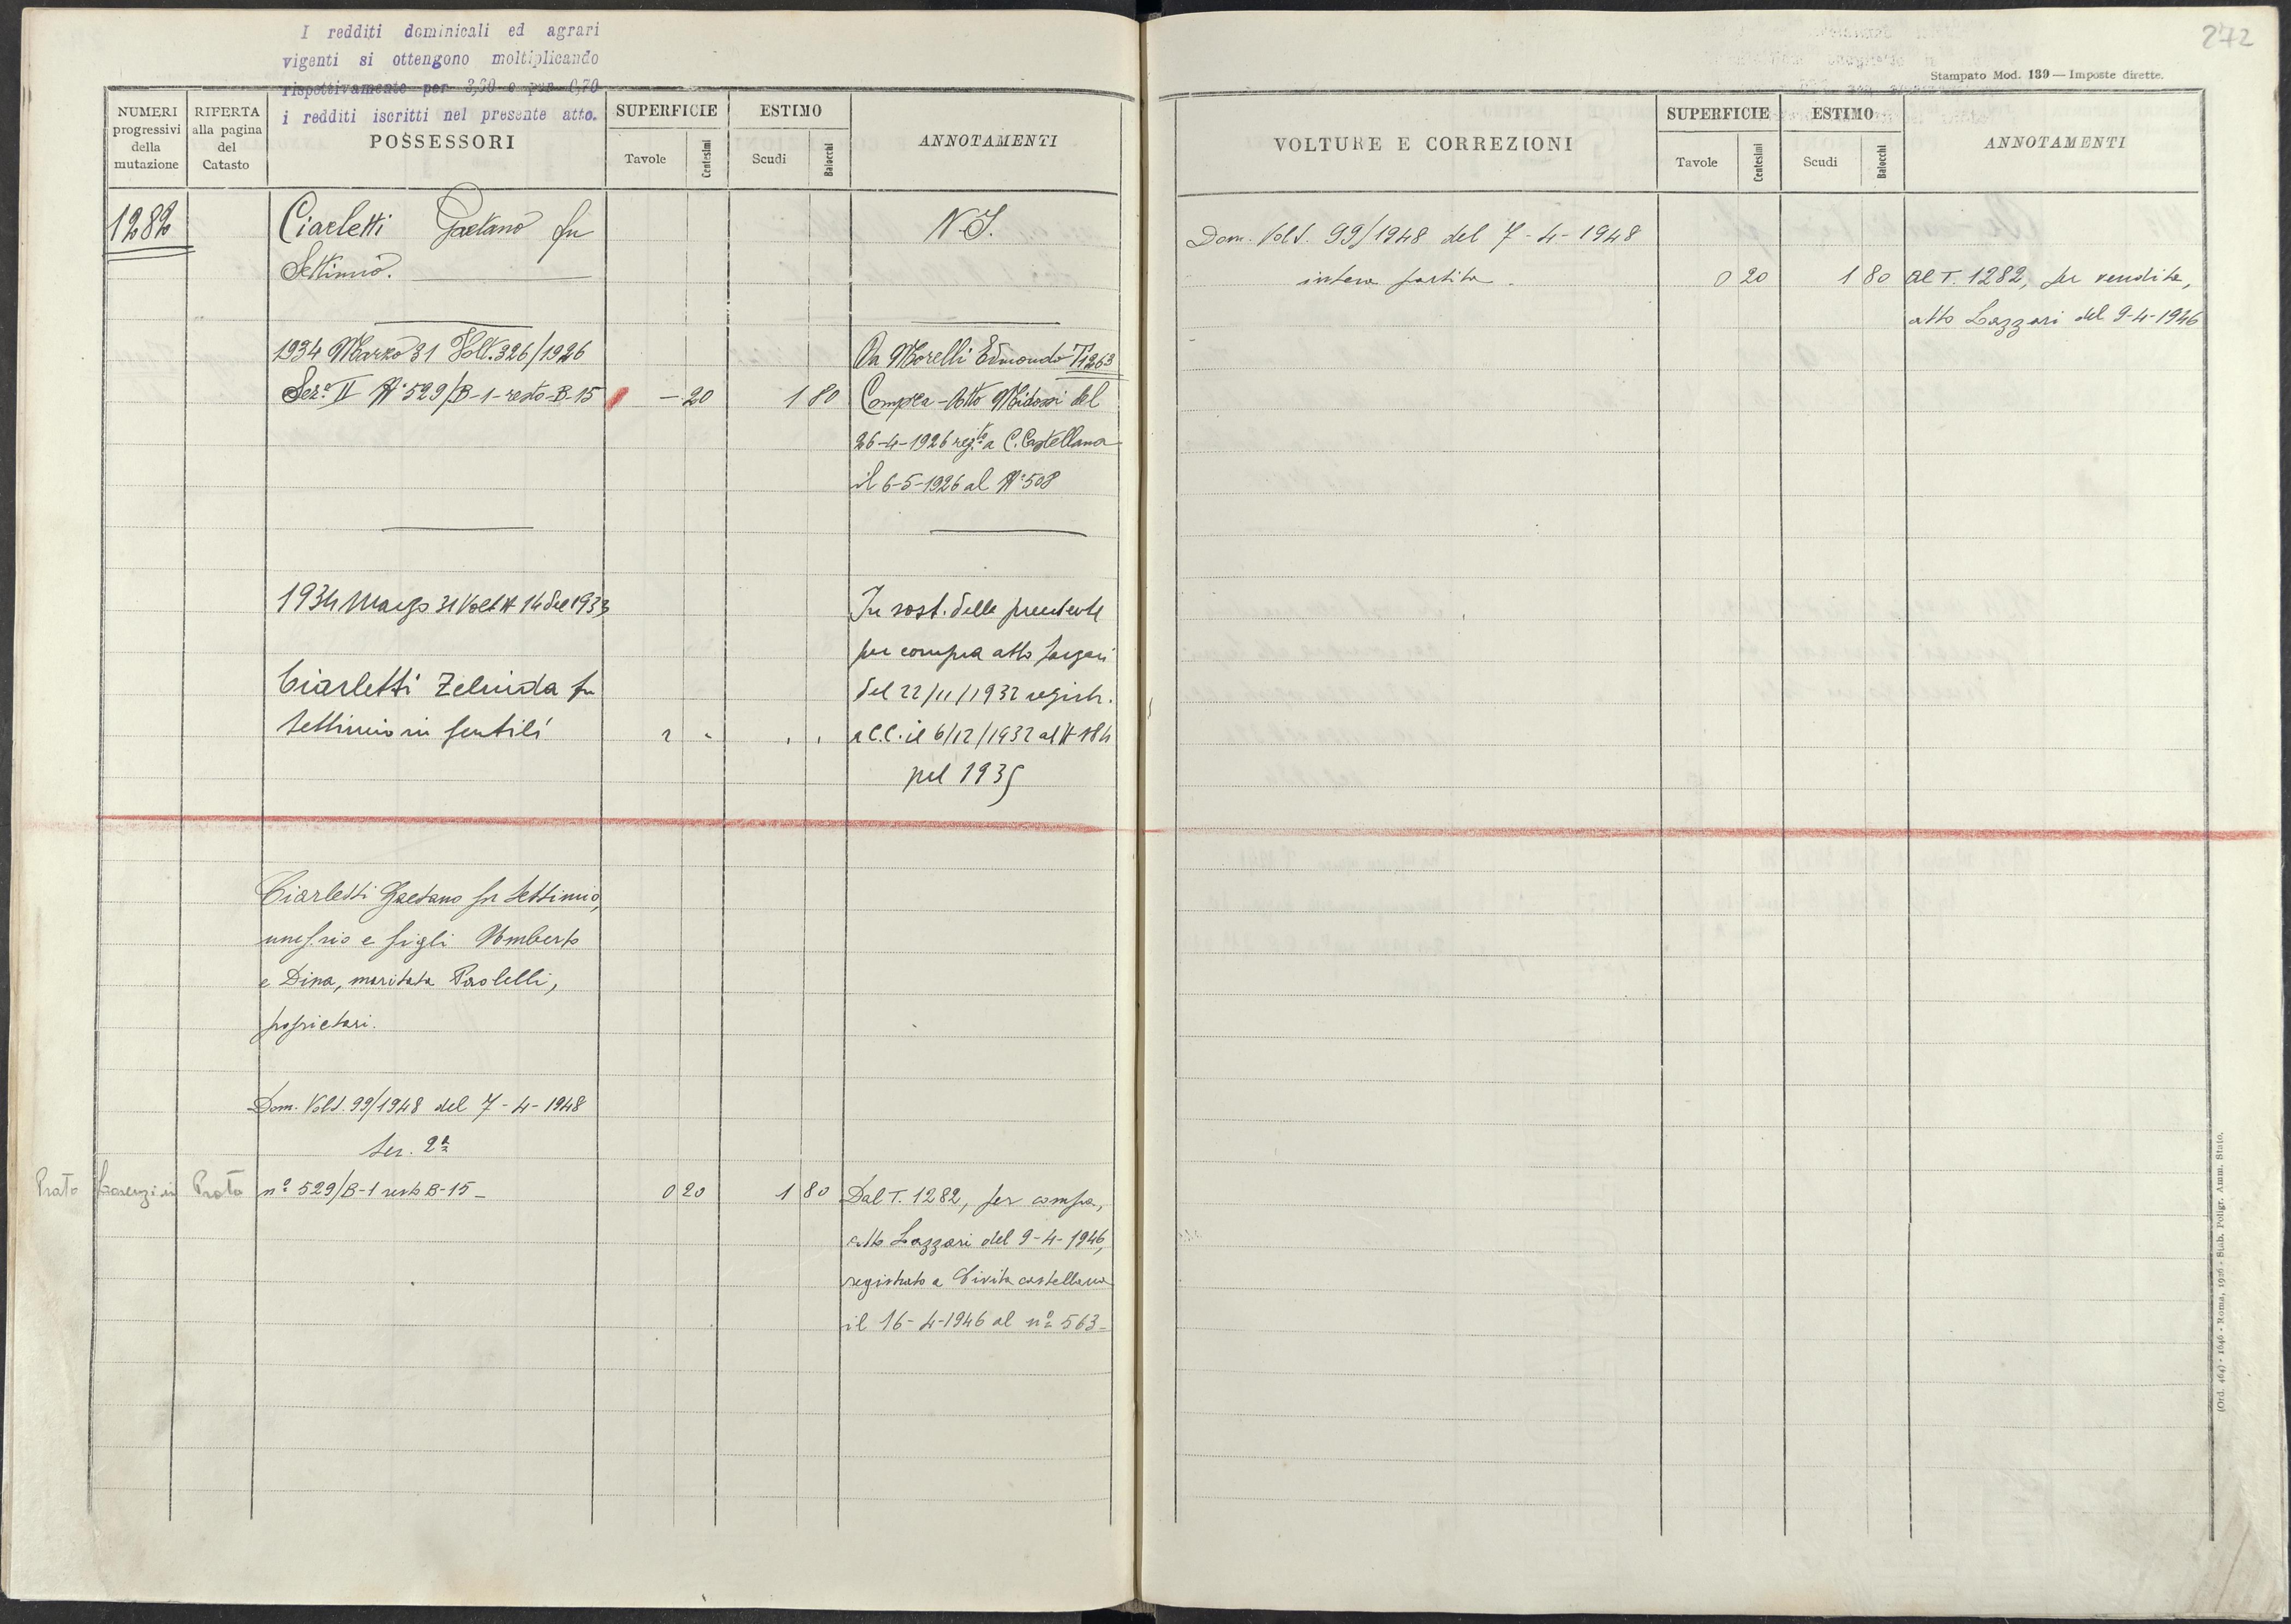 I redditi dominicali ed agrari
vigenti si ottengono moltiplicando
rispettivamente per 3,30 e per 0,70
i redditi iscritti nel presente atto.
NUMERI progressivi della mutazione
RIFERTA alla pagina del Catasto
POSSESSORI
SUPERFICIE
Tavole
Centesimi
ESTIMO
Scudi
Baiocchi
ANNOTAMENTI
1282
Ciarletti Gaetano fu
Settimio.
N.I.
1934 Marzo 31 Volt. 326/1926
Da Morelli Edmondo T1263
Sez.e II N° 529/B-1-resto-B-15 — 20 1 80
Compra-Atto Midossi del
26-4-1926 reg.to a C. Castellana
il 6-5-1926 al N° 508
1934 Marzo 31 Volt N 14 del 1933
In sost. della precedente
per compra atto
Ciarletti Zelinda fu
del 22/11/1932 registr.
Settimio in Gentili " " " "
a C.C. il 6/12/1932 al N
pel 1935
Ciarletti Gaetano fu Settimio,
usuf.rio e figli Umberto
e Dina, maritata Paolelli,
proprietari.
Dom. Volt. 99/1948 del 7-4-1948
Sez. 2a
Prato Prato
n° 529/B-1 resto B-15- 0 20 1 80
Dal T. 1282, per compra,
atto Lazzari del 9-4-1946,
registrato a Civita castellana
il 16-4-1946 al n° 563-
272
Stampato Mod. 139 — Imposte dirette.
VOLTURE E CORREZIONI
SUPERFICIE
Tavole
Centesimi
ESTIMO
Scudi
Baiocchi
ANNOTAMENTI
Dom. Volt. 99/1948 del 7-4-1948
intera partita. 0 20 1 80 al T. 1282, per vendita,
atto Lazzari del 9-4-1946
(Ord. 464) - 1646 - Roma, 1926 - Stab. Poligr. Amm. Stato.